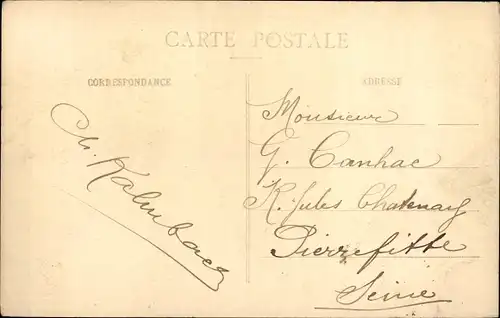 CARTE POSTALE
CORRESPONDANCE
ADRESSE
Ch. Kalmbach
Monsieur
G. Canhac
R. Jules Chatenay
Pierrefitte
Seine